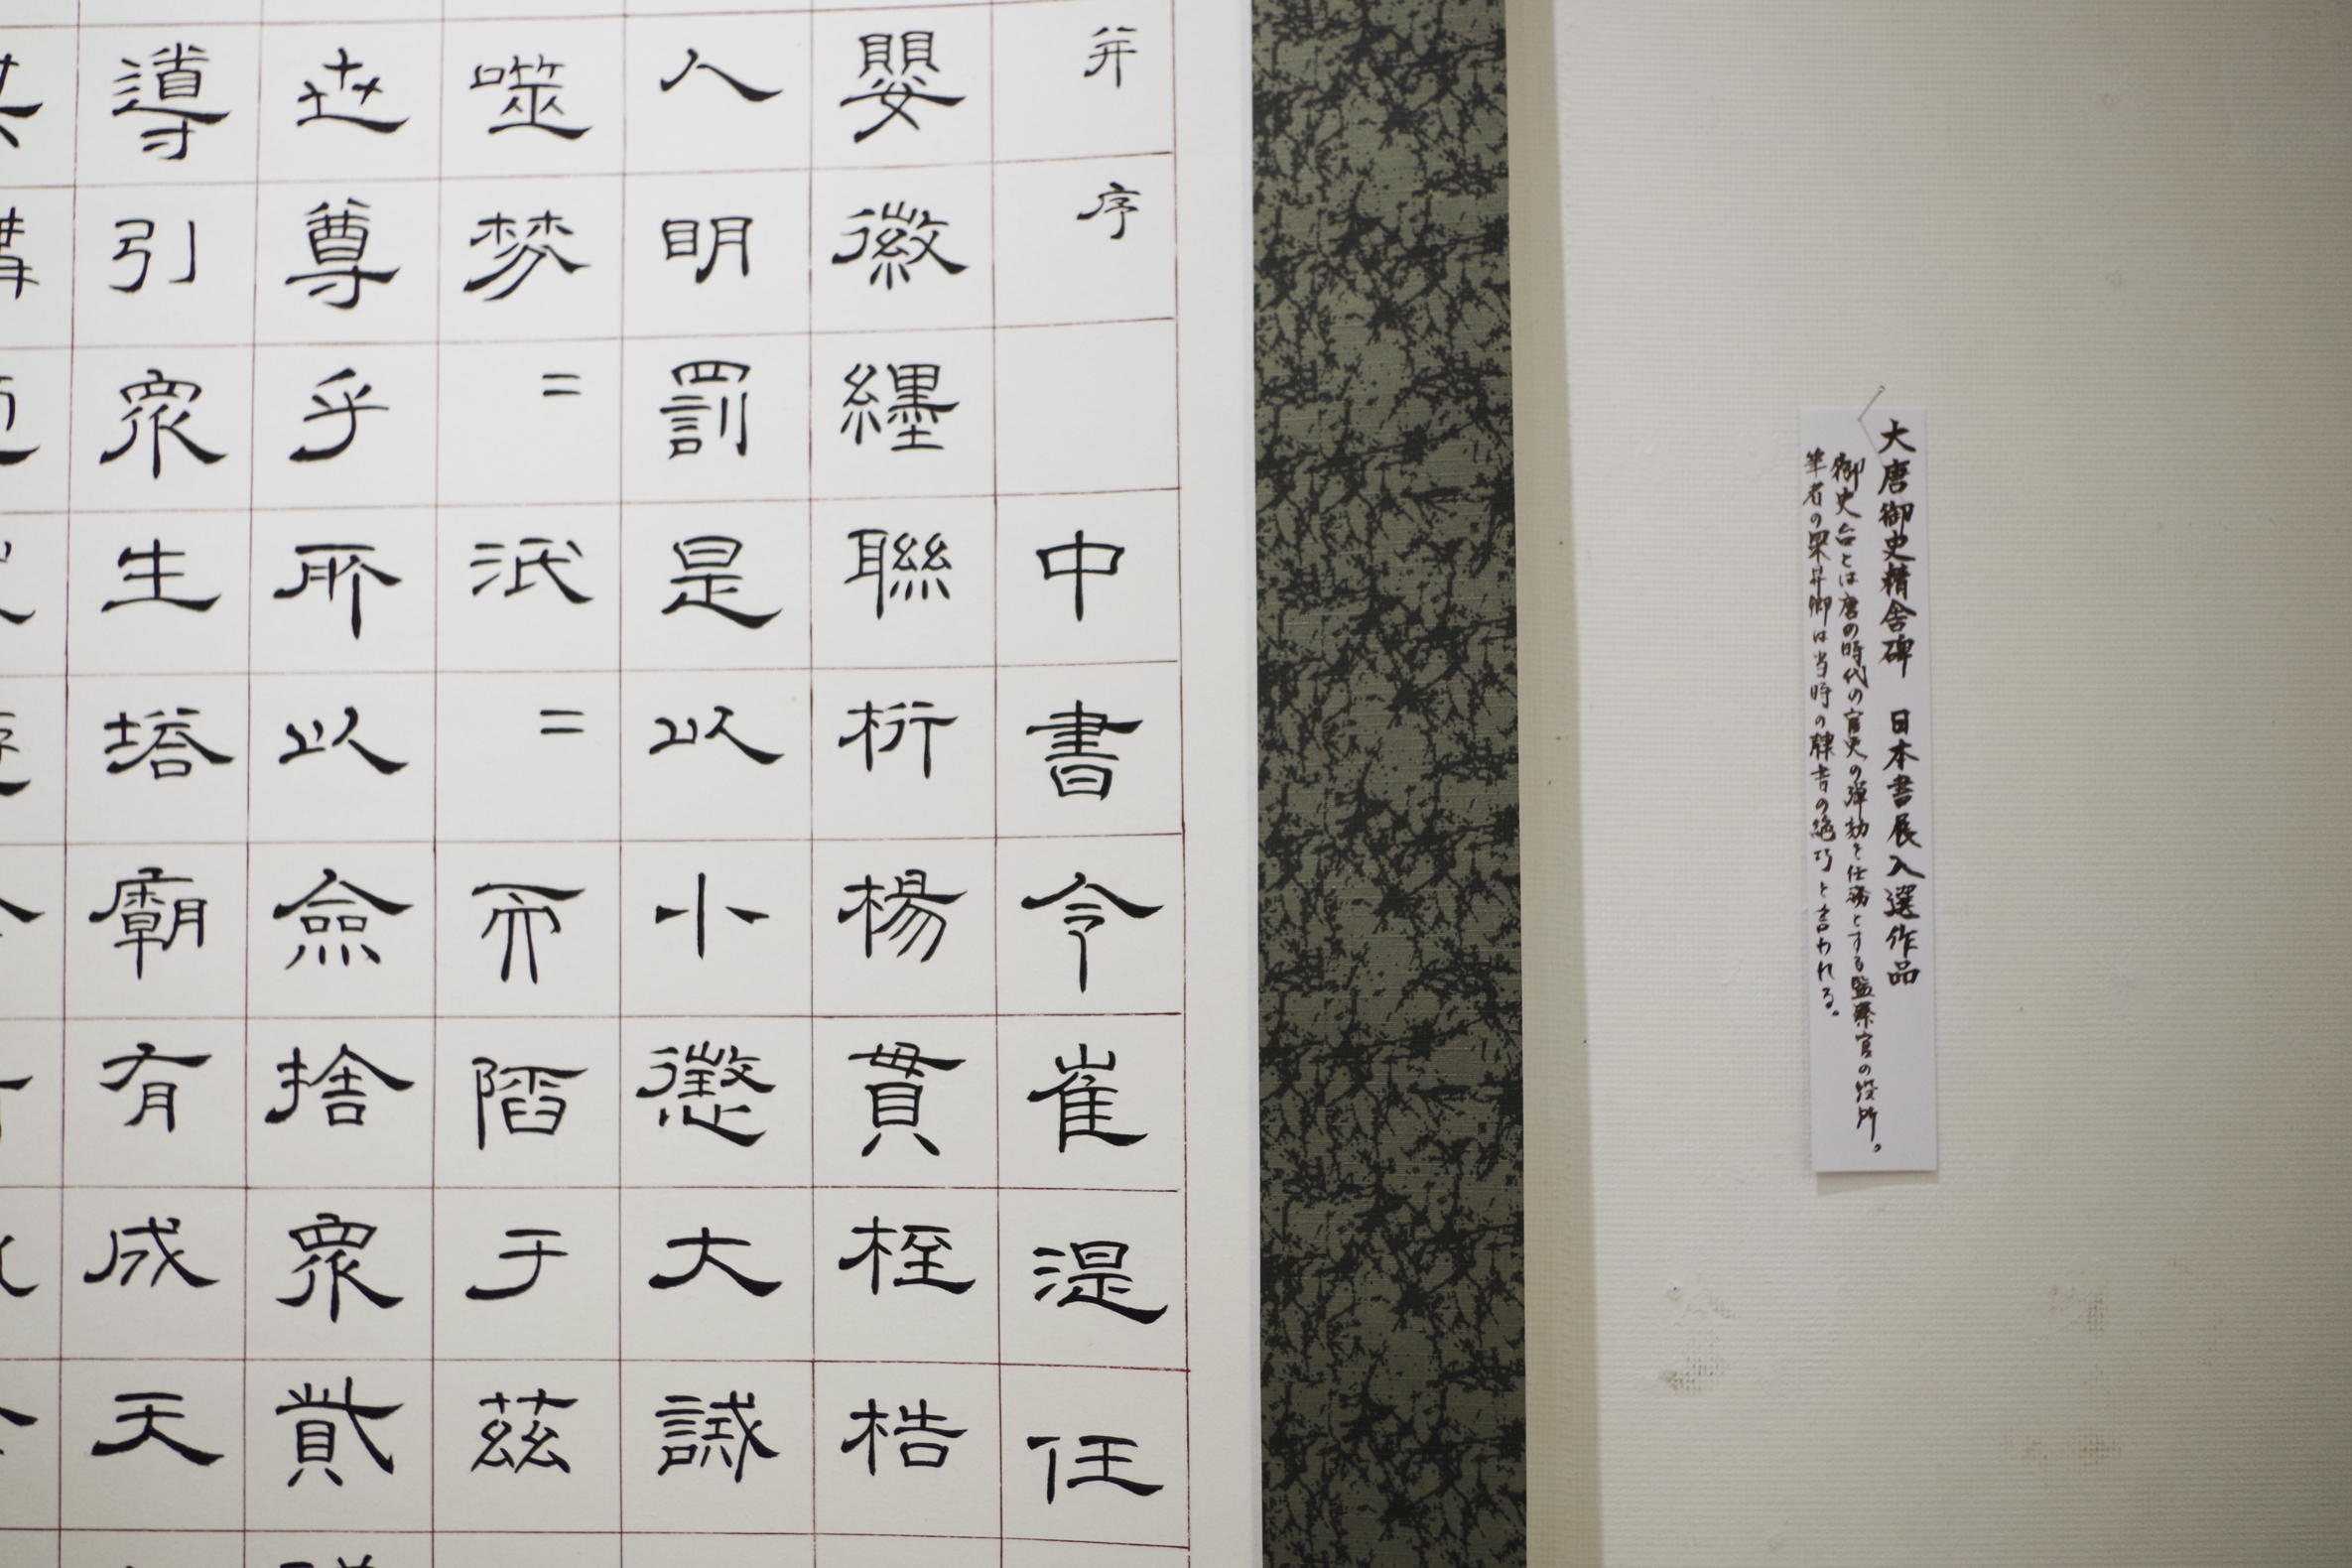 大唐御史精舎碑　日本書展入選作品
御史台とは唐の時代の官吏の弾劾を任務とする監察官の役所。
筆者の梁昇卿は当時の隷書の絶巧と言われる。
并序　中書令崔湜任
嬰徽纆聯桁楊貫桎梏
人明罰是以小懲大誡
噬棼=泯=而陷于茲
世尊乎所以僉捨眾貲
導引眾生塔廟有成天